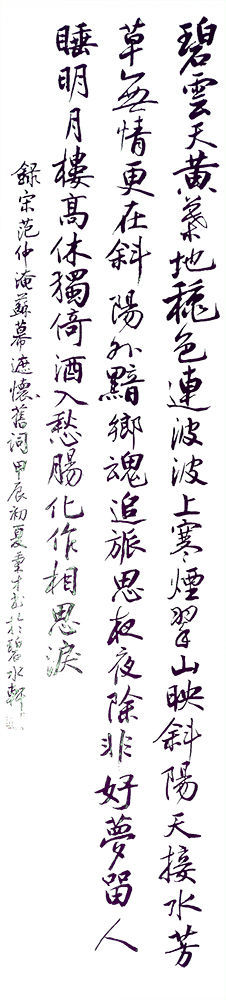 碧雲天黃葉地穐色連波波上寒煙翠山映斜陽天接水芳
草無情更在斜陽外黯鄉魂追旅思夜夜除非好夢留人
睡明月樓高休獨倚酒入愁腸化作相思淚
錄宋范仲淹蘇幕遮懷舊詞甲辰初夏東才书於碧水軒